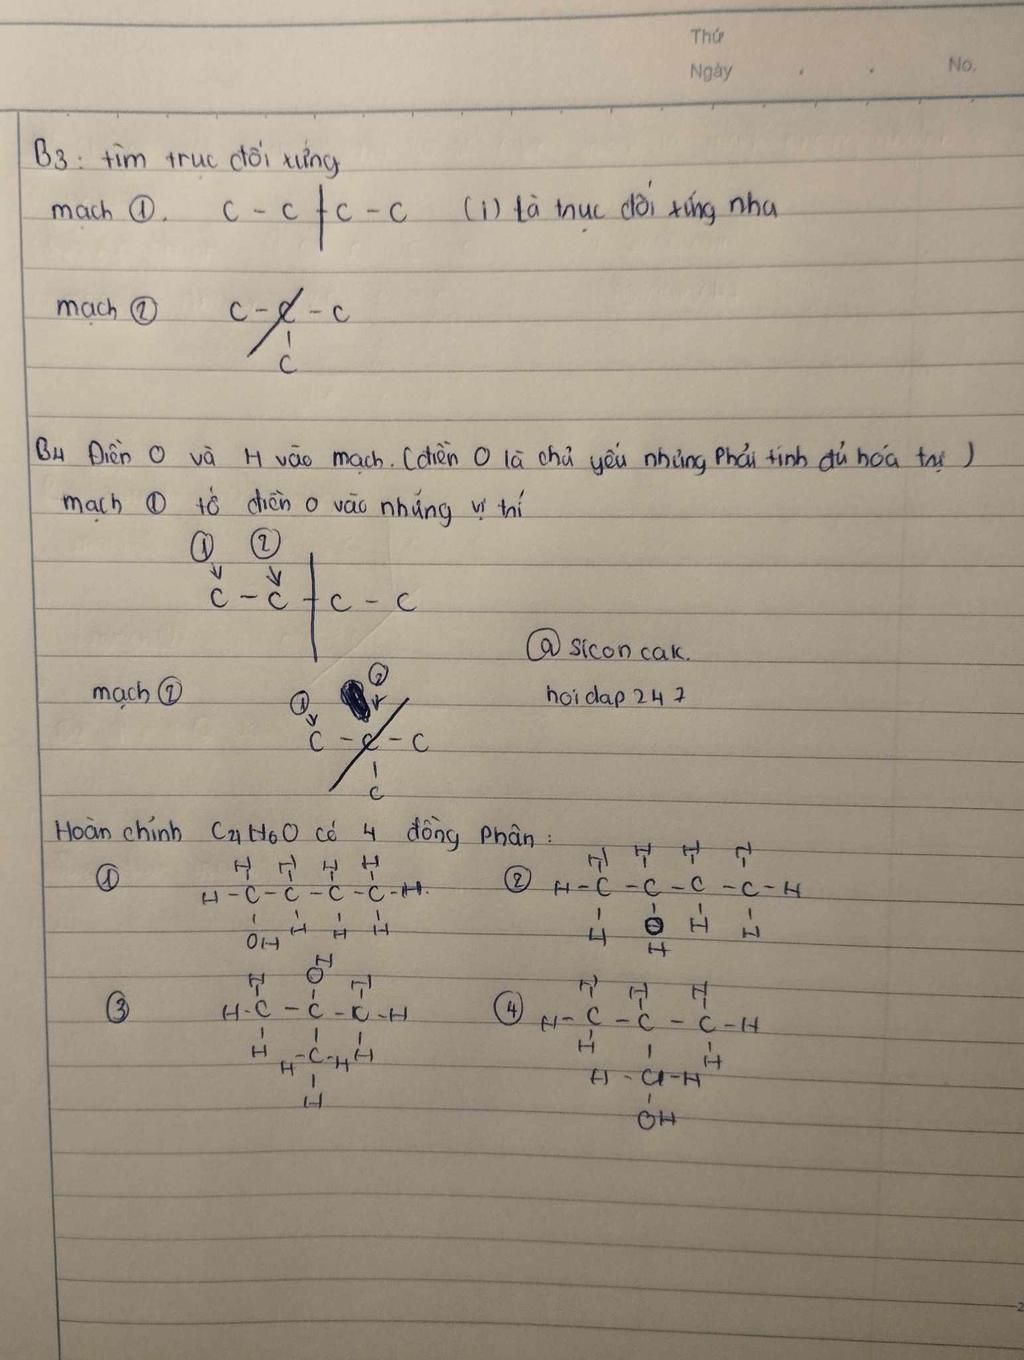 Thứ
Ngày . . No.
B3: tìm trục đối xứng
mạch ①. C - C + C - C (i) là trục đối xứng nha
mạch ② C - C - C
C
B4 Điền O và H vào mạch. (điền O là chủ yếu nhưng Phải tính đủ hóa trị)
mạch ① tớ điền O vào những vị trí
① ②
C - C + C - C
@ sicon cak.
mạch ② hoidap 247
① ②
C - C - C
C
Hoàn chỉnh C4H6O có 4 đồng Phân:
① H H H H
H - C - C - C - C - H.
OH H H H
② H H H H
H - C - C - C - C - H
H O H H
H
③ H O H H
H - C - C - C - H
H H - C - H H
H
④ H H H
H - C - C - C - H
H H - C - H H
OH
2